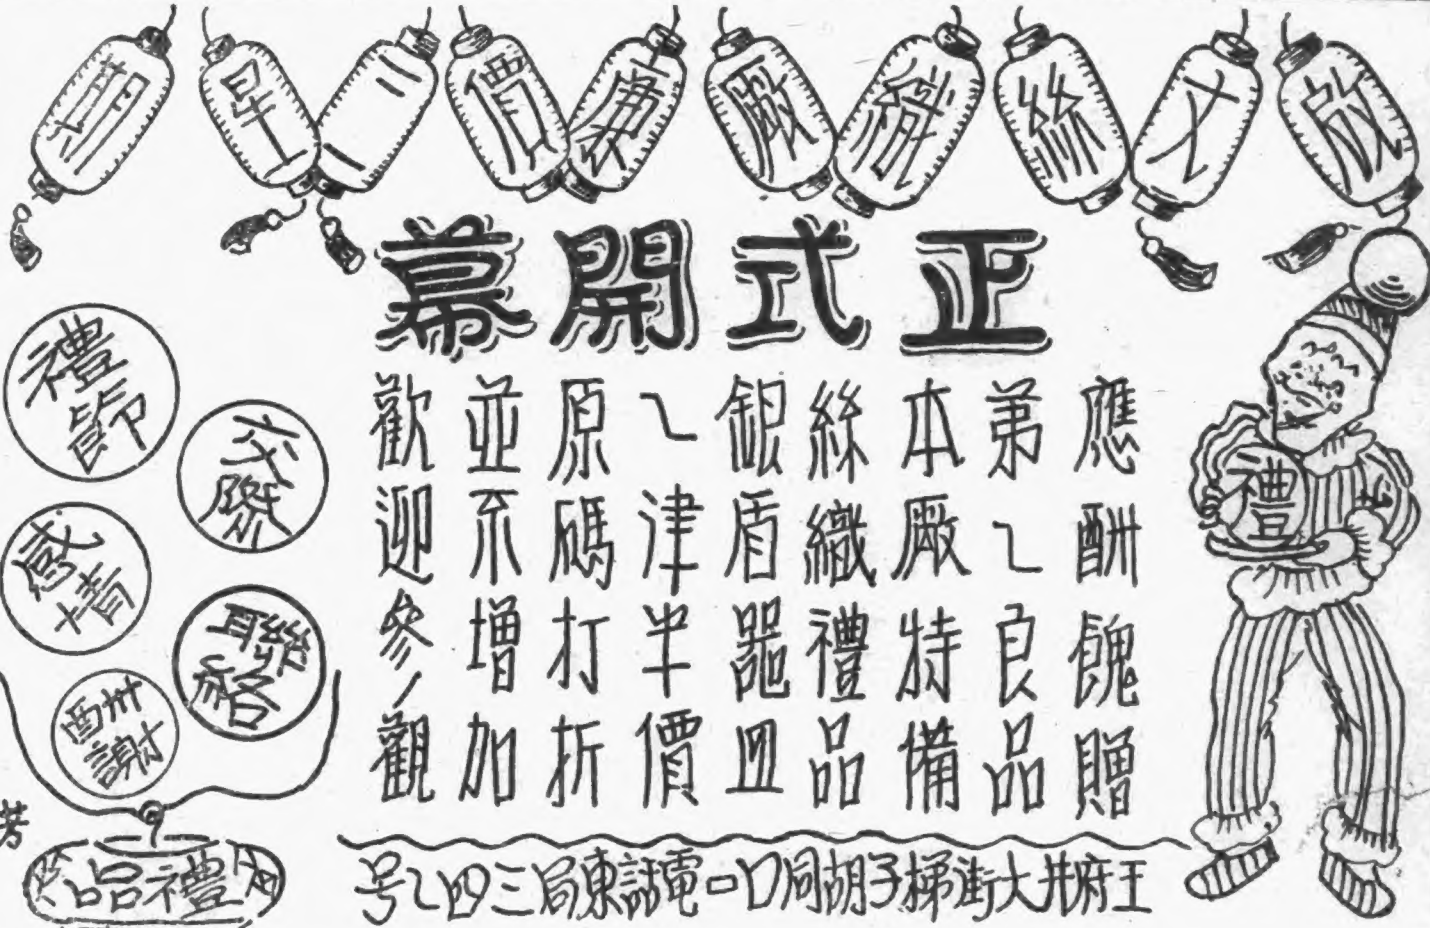 啟文絲織廠廉價二星期
正式開幕
應酬餽贈
第一良品
本廠特備
絲織禮品
銀盾器皿
一津半價
原碼打折
並不增加
歡迎參觀
禮
禮節
交際
感情
聯絡
酬謝
禮品
芳
王府井大街梯子胡同口電話東局三四乙号